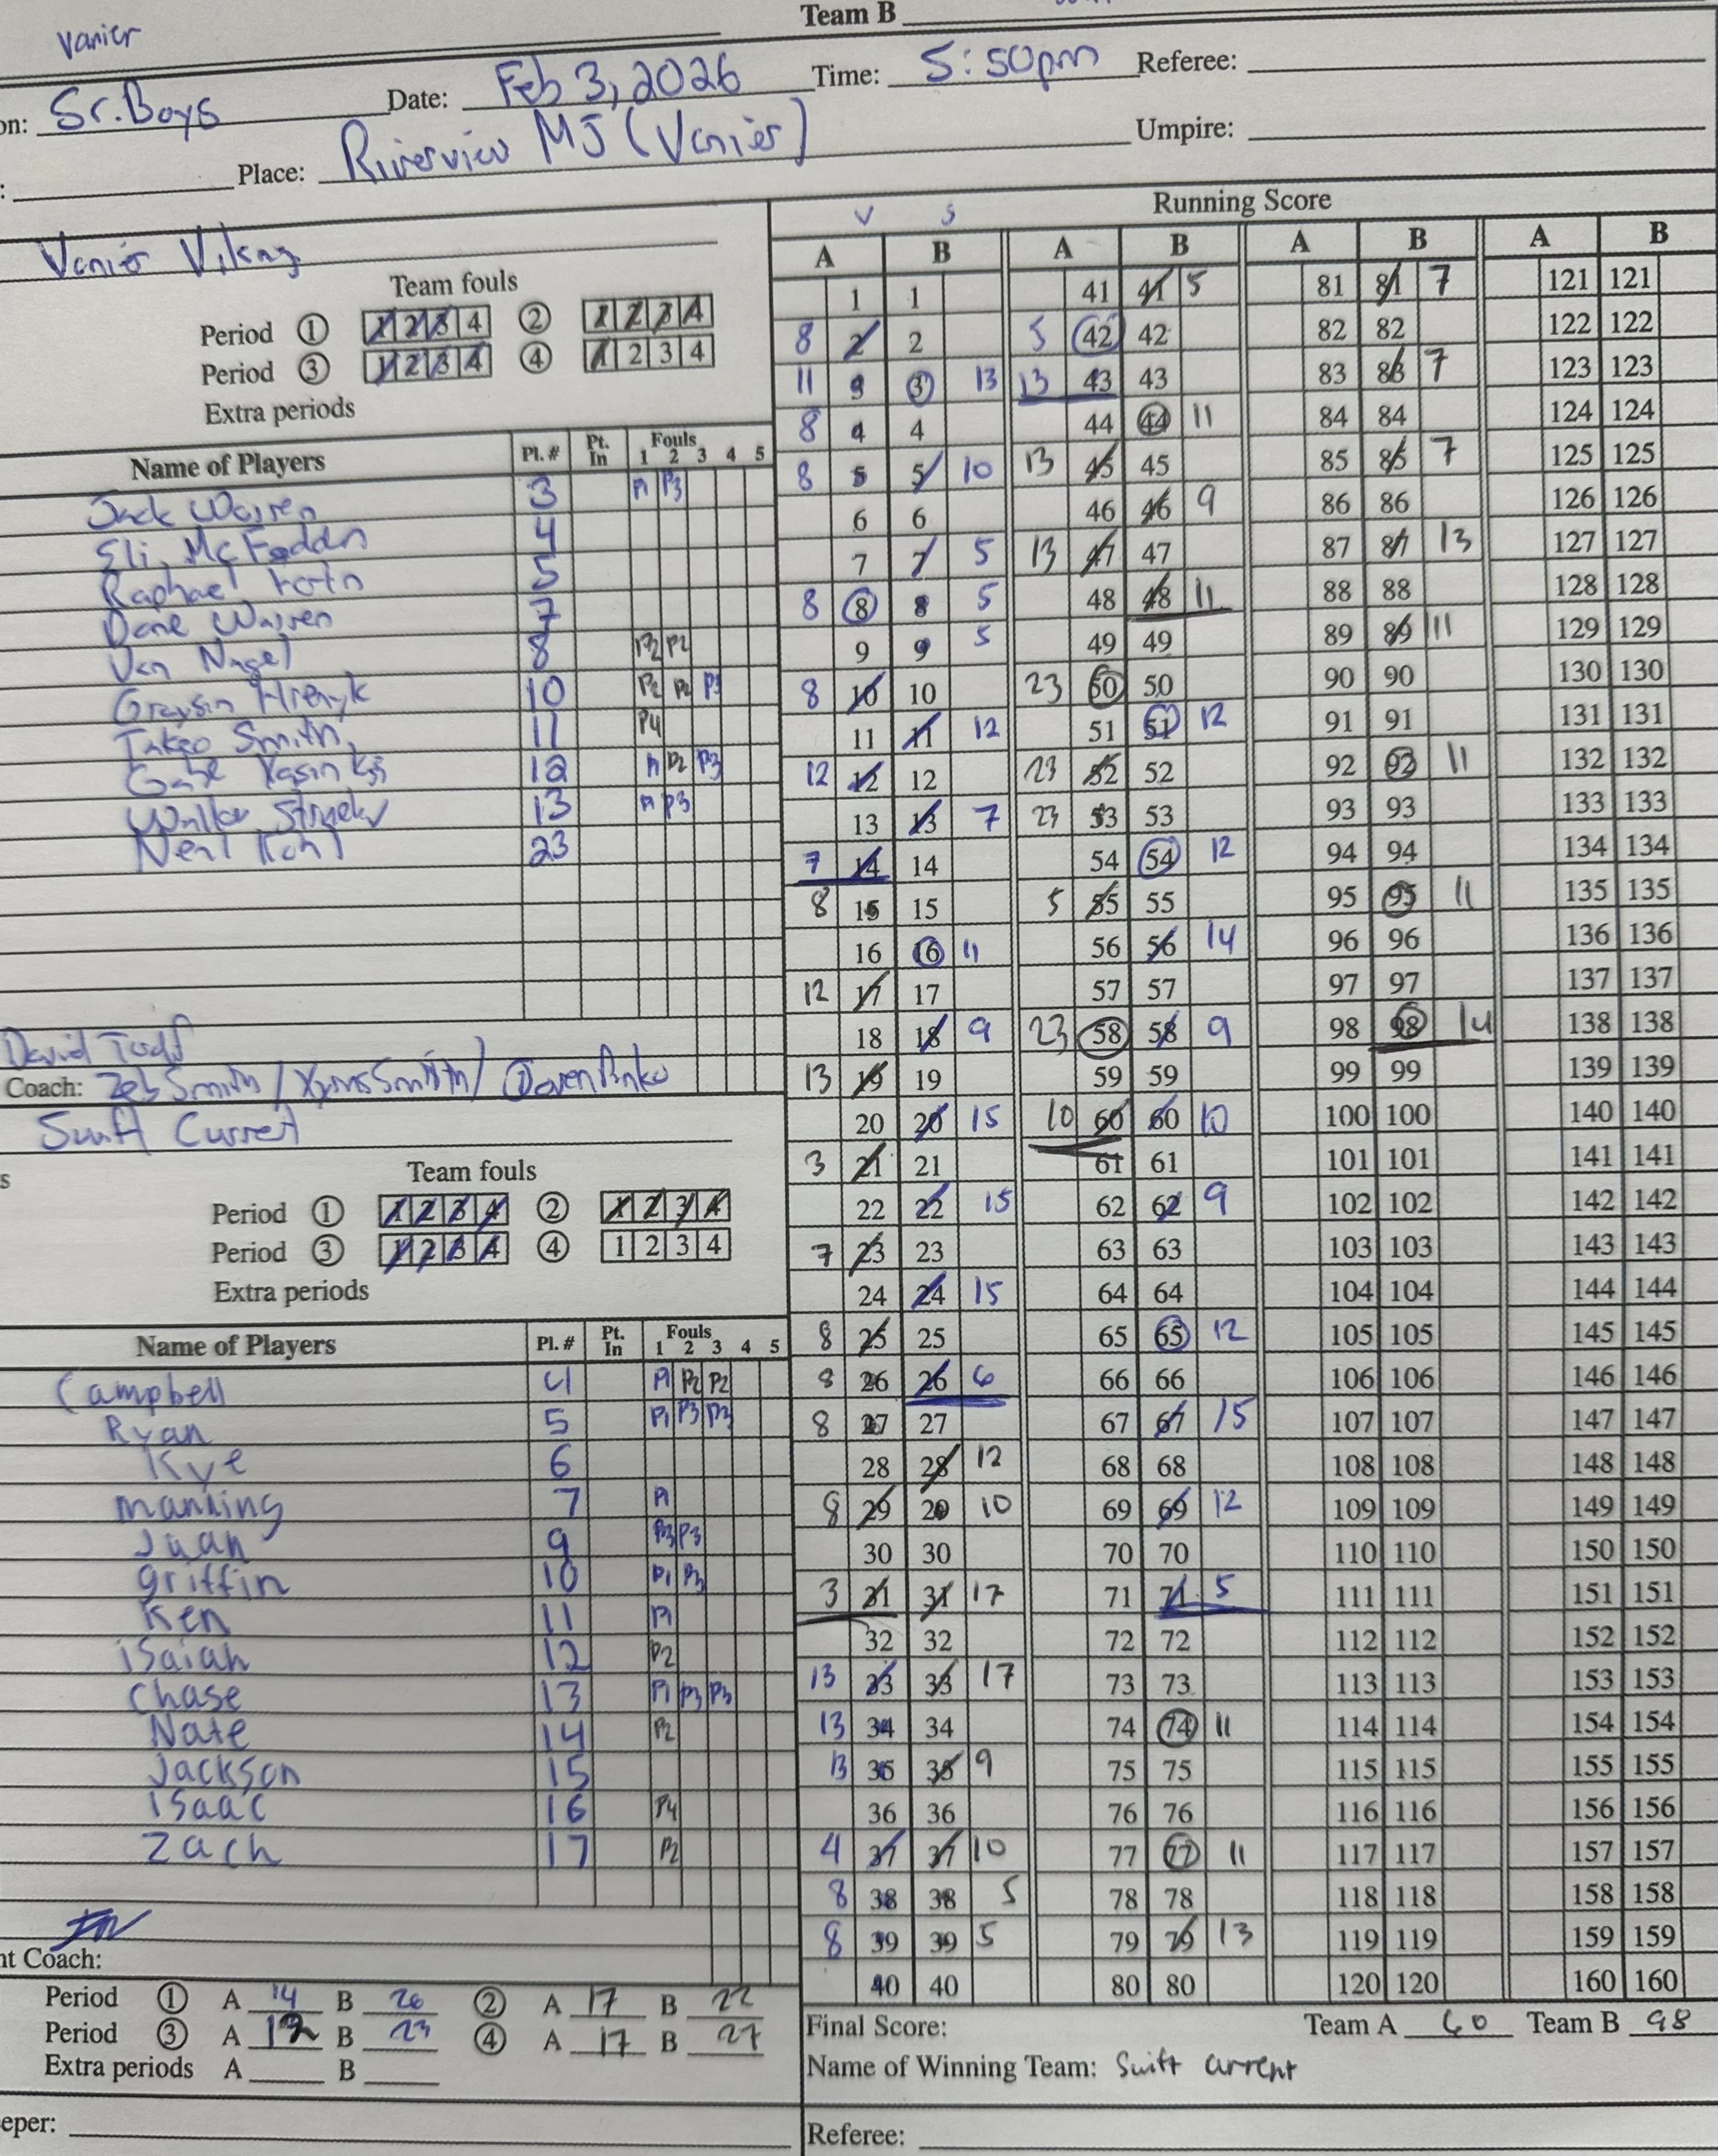 Team B
Vanier
on: Sr. Boys Date: Feb 3, 2026 Time: 5:50pm Referee:
: Place: Riverview MJ (Vanier) Umpire:
Vanier Vikings
Team fouls
Period 1 1 2 3 4 2 1 2 3 4
Period 3 1 2 3 4 4 1 2 3 4
Extra periods
Name of Players Pl. # Pt. In Fouls 1 2 3 4 5
Jack Warren 3 P1 P3
Eli McFaddn 4
Raphael 5
Dane Warren 7
Van Nagel 8 P2 P2
Graysin 10 P2 P2 P3
Takeo Smith 11 P4
Gabe 12 P1 P2 P3
Walker 13 P1 P3
Neal 23
David
Coach: Zeb Smith /
Swift Current
s
Team fouls
Period 1 1 2 3 4 2 1 2 3 4
Period 3 1 2 3 4 4 1 2 3 4
Extra periods
Name of Players Pl. # Pt. In Fouls 1 2 3 4 5
Campbell 4 P1 P2 P2
Ryan 5 P1 P3 P3
Kye 6
Manning 7 P1
Juan 9 P3 P3
Griffin 10 P1 P3
Ken 11 P1
iSaiah 12 P2
Chase 13 P1 P3 P3
Nate 14 P2
Jackson 15
isaac 16 P4
Zach 17 P2
nt Coach:
Period 1 A 14 B 26 2 A 17 B 22
Period 3 A 12 B 23 4 A 17 B 27
Extra periods A B
eper:
V S Running Score
A B A B A B A B
1 1 41 41 5 81 81 7 121 121
8 2 2 5 42 42 82 82 122 122
11 3 3 13 13 43 43 83 83 7 123 123
8 4 4 44 44 11 84 84 124 124
8 5 5 10 13 45 45 85 85 7 125 125
6 6 46 46 9 86 86 126 126
7 7 5 13 47 47 87 87 13 127 127
8 8 8 5 48 48 11 88 88 128 128
9 9 5 49 49 89 89 11 129 129
8 10 10 23 50 50 90 90 130 130
11 11 12 51 51 12 91 91 131 131
12 12 12 23 52 52 92 92 11 132 132
13 13 7 23 53 53 93 93 133 133
7 14 14 54 54 12 94 94 134 134
8 15 15 5 55 55 95 95 11 135 135
16 16 11 56 56 14 96 96 136 136
12 17 17 57 57 97 97 137 137
18 18 9 23 58 58 9 98 98 14 138 138
13 19 19 59 59 99 99 139 139
20 20 15 10 60 60 10 100 100 140 140
3 21 21 61 61 101 101 141 141
22 22 15 62 62 9 102 102 142 142
7 23 23 63 63 103 103 143 143
24 24 15 64 64 104 104 144 144
8 25 25 65 65 12 105 105 145 145
8 26 26 6 66 66 106 106 146 146
8 27 27 67 67 15 107 107 147 147
28 28 12 68 68 108 108 148 148
8 29 29 10 69 69 12 109 109 149 149
30 30 70 70 110 110 150 150
3 31 31 17 71 71 5 111 111 151 151
32 32 72 72 112 112 152 152
13 33 33 17 73 73 113 113 153 153
13 34 34 74 74 11 114 114 154 154
13 35 35 9 75 75 115 115 155 155
36 36 76 76 116 116 156 156
4 37 37 10 77 77 11 117 117 157 157
8 38 38 5 78 78 118 118 158 158
8 39 39 5 79 79 13 119 119 159 159
40 40 80 80 120 120 160 160
Final Score: Team A 60 Team B 98
Name of Winning Team: Swift current
Referee: